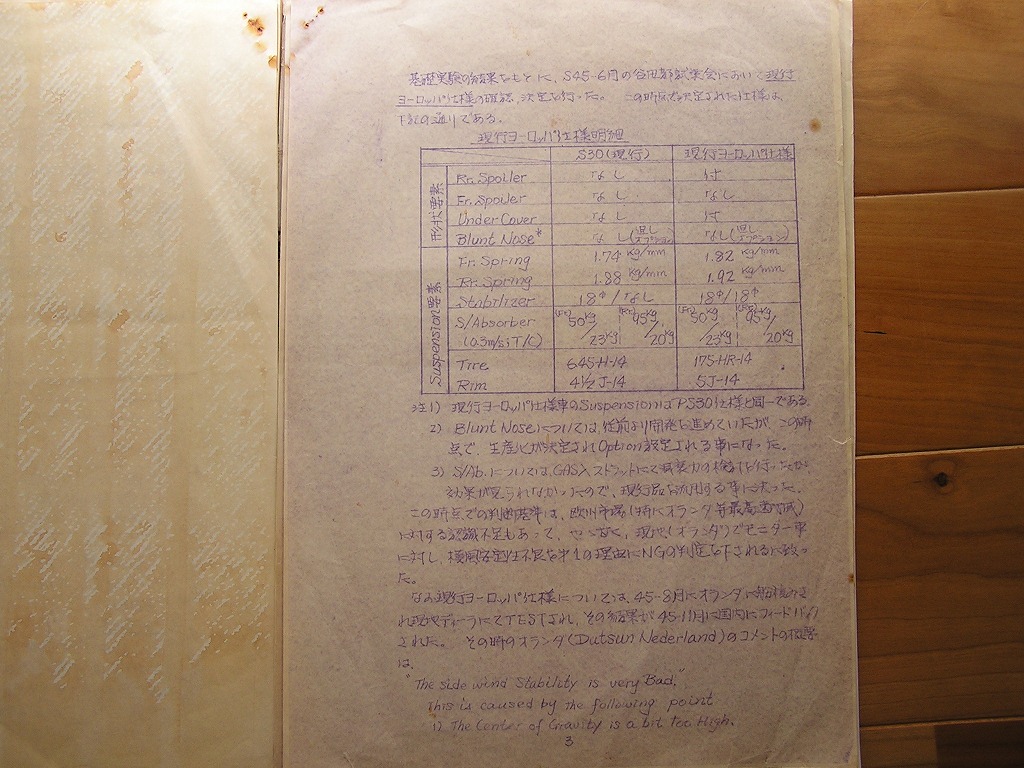 基礎実験の結果をもとに、S45-6月の谷田部試乗会において現行
ヨーロッパ仕様の確認、決定を行った。 この時点で決定された仕様は、
下記の通りである。
現行ヨーロッパ仕様明細
S30(現行) 現行ヨーロッパ仕様
形状要素
Rr. Spoiler なし 付
Fr. Spoiler なし なし
Under Cover なし 付
Blunt Nose* なし(但しオプション) なし(但しオプション)
Suspension要素
Fr. Spring 1.74 kg/mm 1.82 kg/mm
Rr. Spring 1.88 kg/mm 1.92 kg/mm
Stabilizer 18φ/なし 18φ/18φ
S/Absorber (Fr) 50kg/23kg (Rr) 45kg/20kg (Fr) 50kg/23kg (Rr) 45kg/20kg
(0.3m/s T/C)
Tire 6.45-H-14 175-HR-14
Rim 4½J-14 5J-14
注1) 現行ヨーロッパ仕様車のSuspensionはPS30仕様と同一である。
2) Blunt Noseについては、従前より開発を進めていたが、この時
点で、生産化が決定されOption設定される事になった。
3) S/Ab.については、GAS入ストラットにて減衰力の検討を行ったが
効果が見られなかったので、現行品を流用する事に決った。
この時点での判断基準は、欧州市場(特にオランダ等最高速
に対する認識不足もあって、 現地(オランダ)でモニター車
に対し、横風安定性不良を第1の理由にNGの判定を下されるに至っ
た。
なお現行ヨーロッパ仕様については、45-8月にオランダに
れ現地ディーラにてTESTされ、その結果が45-11月に国内にフィードバック
された。 その時のオランダ(Datsun Nederland)のコメントの
は、
"The side wind Stability is very Bad."
This is caused by the following point
1) The Center of Gravity is a bit Too High.
3